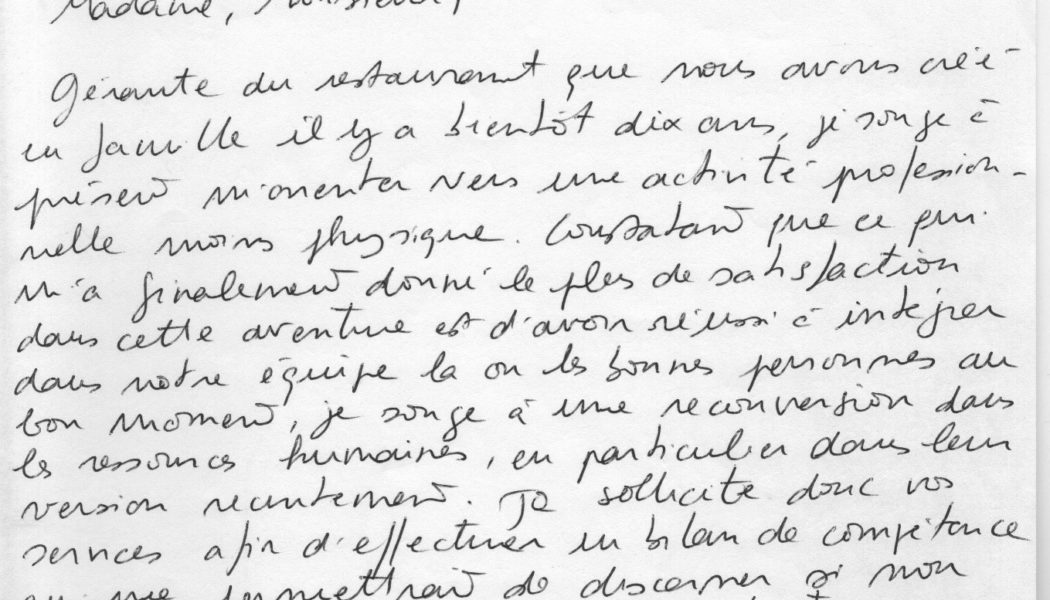 Madame, Monsieur,
Gérante du restaurant que nous avons créé
en famille il y a bientôt dix ans, je songe à
présent m'orienter vers une activité profession-
nelle moins physique. Constatant que ce qui
m'a finalement donné le plus de satisfaction
dans cette aventure est d'avoir réussi à intégrer
dans notre équipe la ou les bonnes personnes au
bon moment, je songe à une reconversion dans
les ressources humaines, en particulier dans leur
version recrutement. Je sollicite donc vos
services afin d'effectuer un bilan de compétence
qui me permettrait de discerner si mon